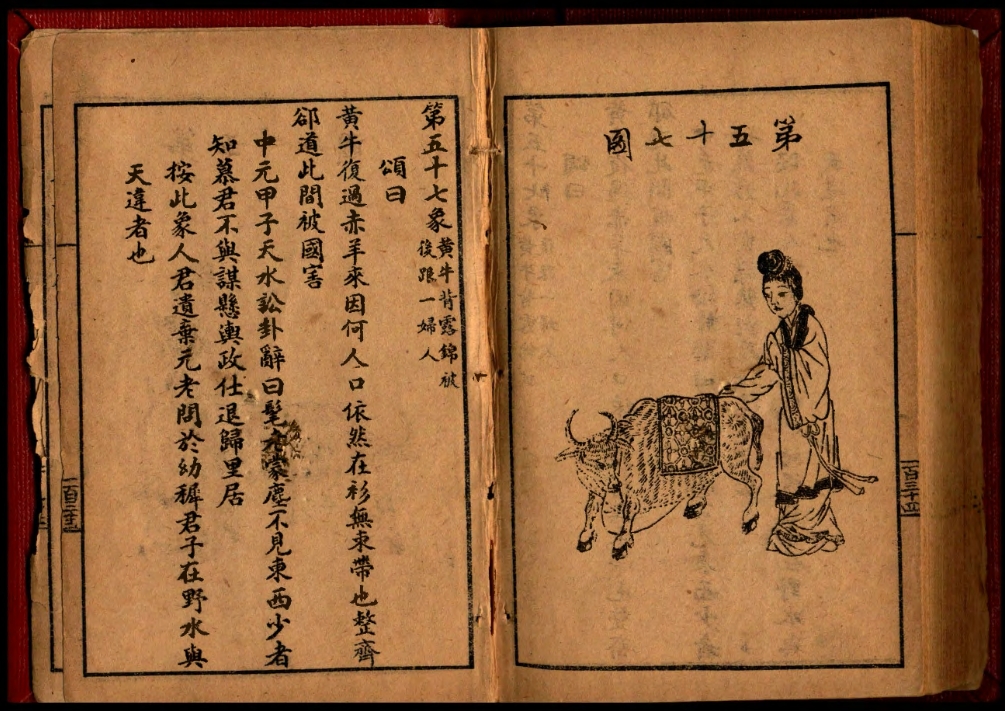 第五十七圖
第五十七象 黃牛背露錦被
後跟一婦人
頌曰
黃牛復過赤羊來因何人口依然在衫無束帶也整齊
郤道此間被國害
中元甲子天水訟卦辭曰髦蒙塵不見東西少者
知慕君不與謀懸輿政仕退歸里居
按此象人君遺棄元老問於幼穉君子在野水與
天違者也
一百三十五